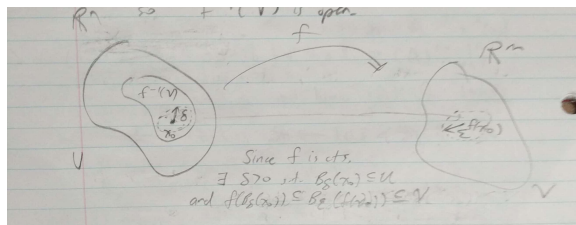 Rⁿ so f⁻¹(V) is open.
f
Rᵐ
f⁻¹(V)
δ
x₀
f(x₀)
ε
U
V
Since f is cts.
∃ δ>0, Bδ(x₀) ⊆ U
and f(Bδ(x₀)) ⊆ Bε(f(x₀)) ⊆ V.